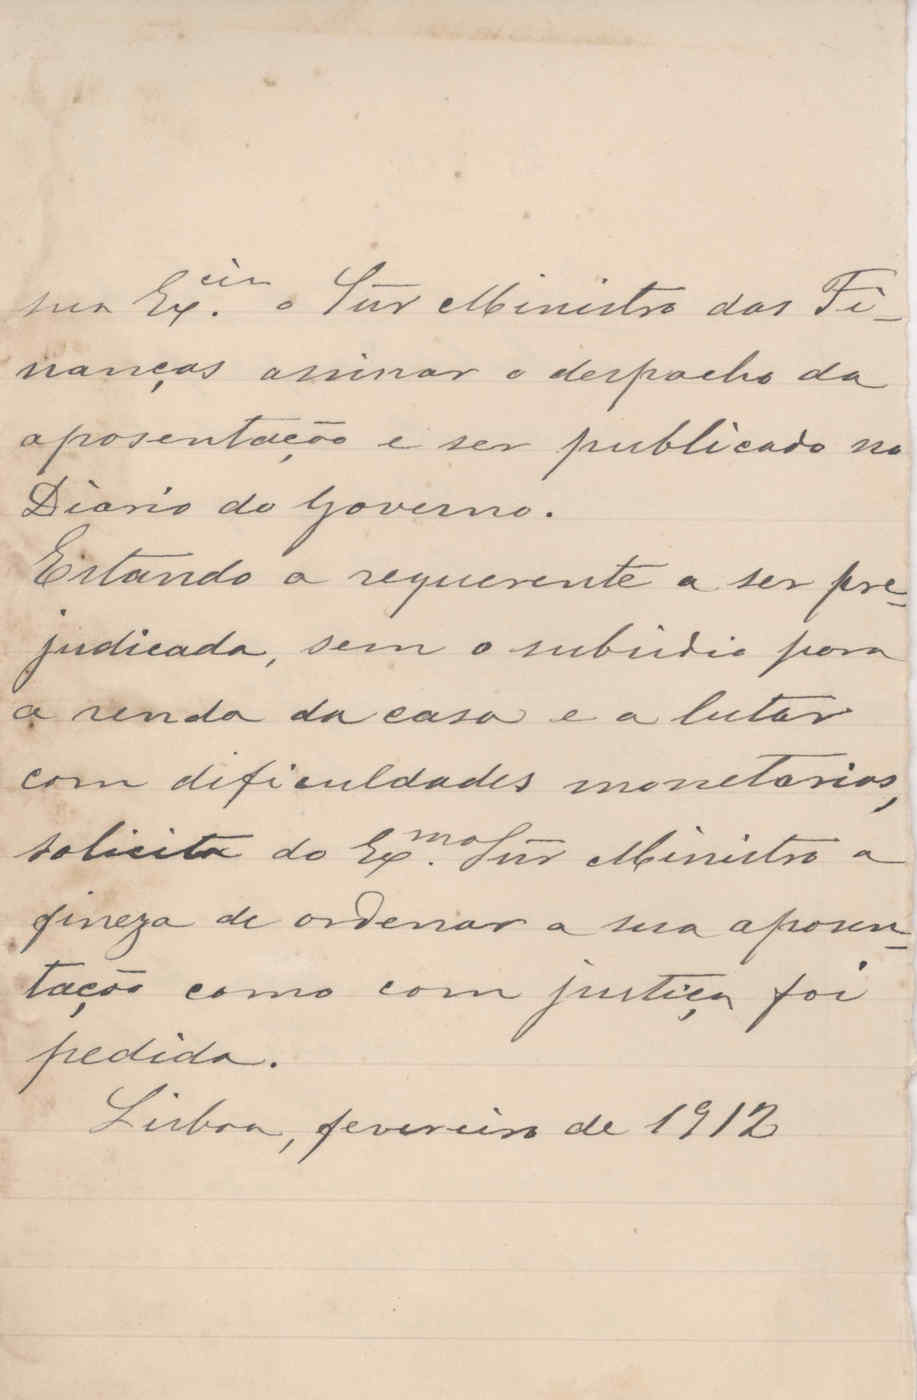 sua Ex.cia o Snr Ministro das Fi-
nanças assinar o despacho da
aposentação e ser publicado no
Diario do Governo.
Estando a requerente a ser pre-
judicada, sem o subsidio para
a renda da casa e a lutar
com dificuldades monetarias,
solicita do Ex.mo Snr Ministro a
fineza de ordenar a sua aposen-
tação como com justiça foi
pedida.
Lisboa, fevereiro de 1912